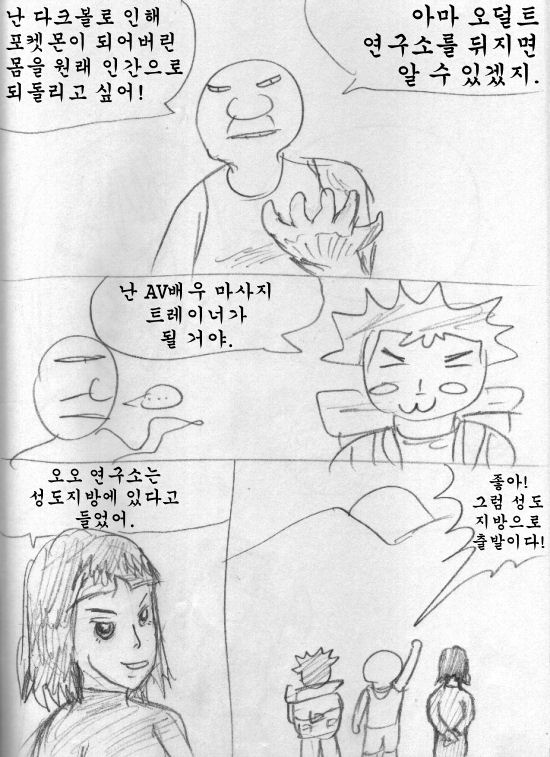 난 다크볼로 인해
포켓몬이 되어버린
몸을 원래 인간으로
되돌리고 싶어!
아마 오덜트
연구소를 뒤지면
알 수 있겠지.
난 AV배우 마사지
트레이너가
될 거야.
...
오오 연구소는
성도지방에 있다고
들었어.
좋아!
그럼 성도
지방으로
출발이다!